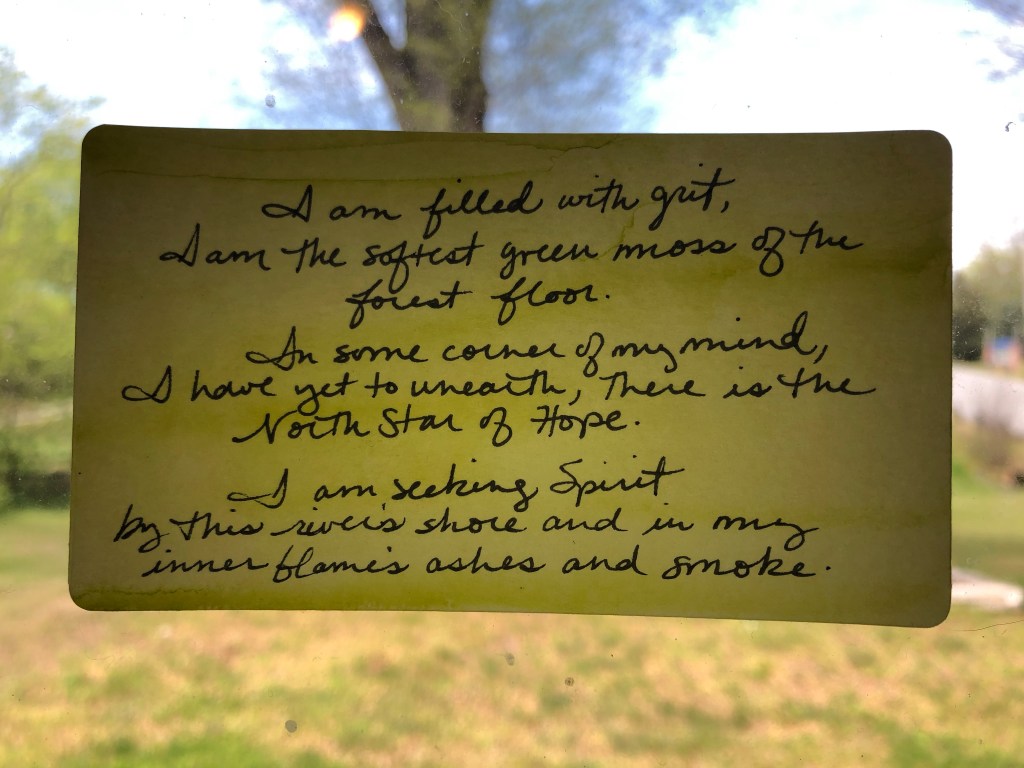 I am filled with grit,
I am the softest green moss of the
forest floor.
In some corner of my mind,
I have yet to unearth, there is the
North Star of Hope.
I am seeking Spirit
by this river's shore and in my
inner flame's ashes and smoke.